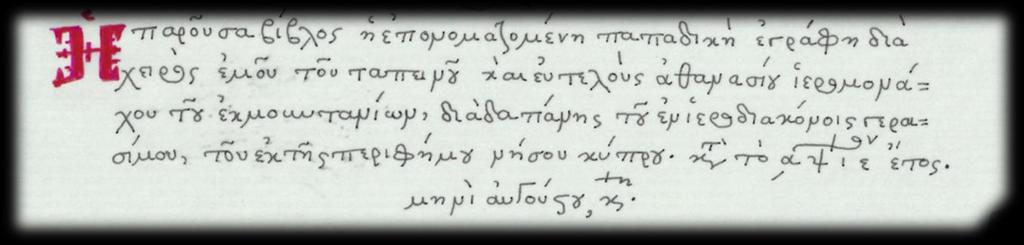 Ἡ παροῦσα βίβλος ἡ ἐπονομαζομένη παπαδικὴ ἐγράφη διὰ
χειρὸς ἐμοῦ τοῦ ταπεινοῦ καὶ εὐτελοῦς ἀθανασίου ἱερομονά=
χου τοῦ ἐκ, διὰ δαπάνης τοῦ ἐν ἱεροδιακόνοις γερα=
σίμου, τοῦ ἐκ τῆς περιφήμου νήσου κύπρου. κτ τὸ ͵αψιεον ἔτος.
μηνὶ αὐγούστου, κςτη.